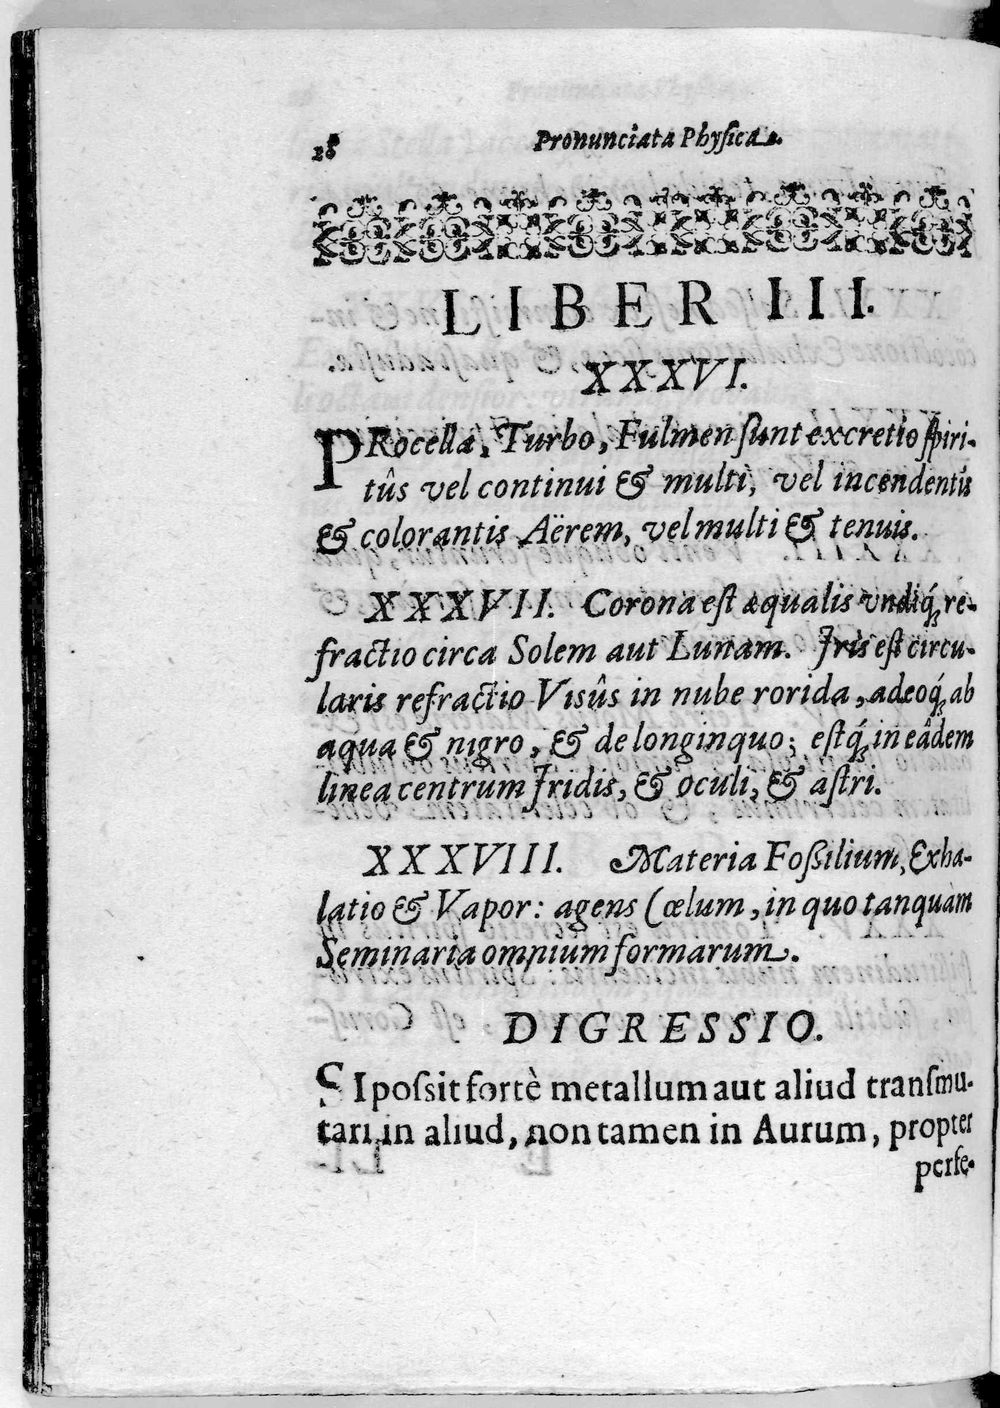 28 Pronunciata Physica.
LIBER III.
XXXVI.
PRocella, Turbo, Fulmen ſunt excretio ſpiri-
tûs vel continui & multi, vel incendentis
& colorantis Aërem, vel multi & tenuis.
XXXVII. Corona eſt æqualis vndiq́; re-
fractio circa Solem aut Lunam. Iris eſt circu-
laris refractio Visûs in nube rorida, adeoq́; ab
aqua & nigro, & de longinquo; eſtq́; in eâdem
linea centrum Iridis, & oculi, & aſtri.
XXXVIII. Materia Foſsilium, Exha-
latio & Vapor: agens Cœlum, in quo tanquam
Seminaria omnium formarum.
DIGRESSIO.
SI poſsit fortè metallum aut aliud tranſmu-
tari in aliud, non tamen in Aurum, propter
perfe-